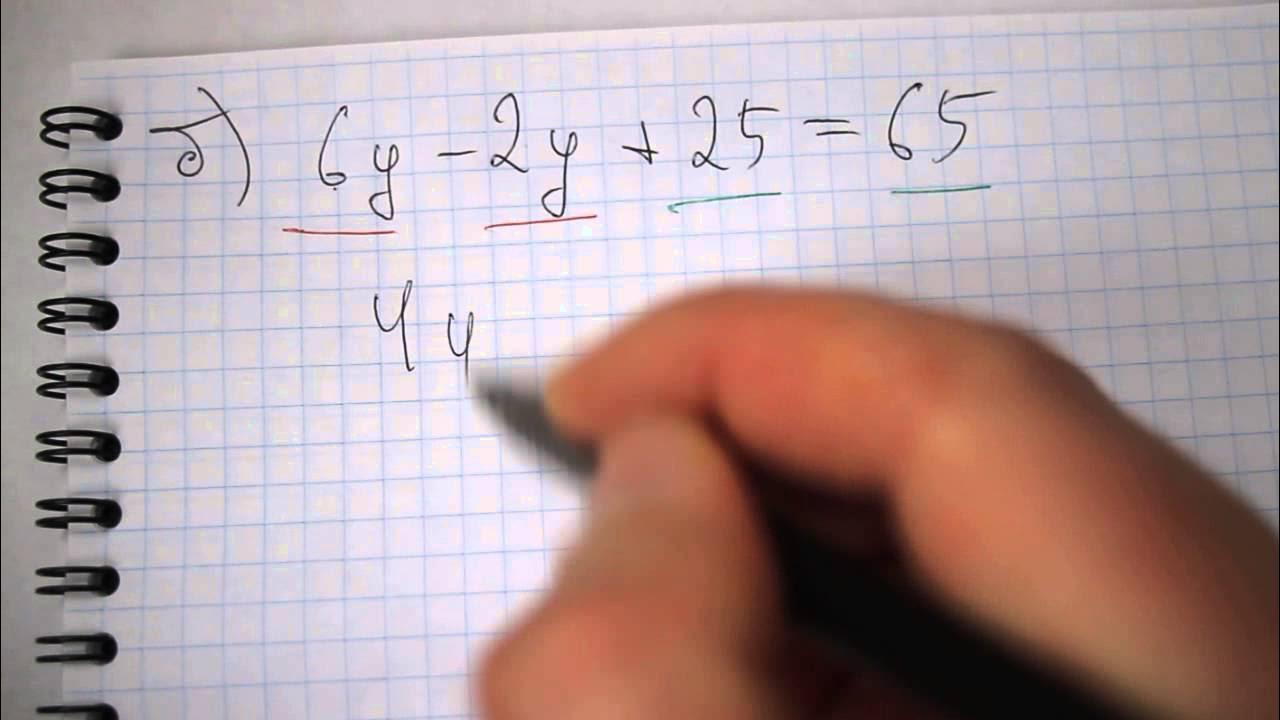 б) 6y - 2y + 25 = 65
4y